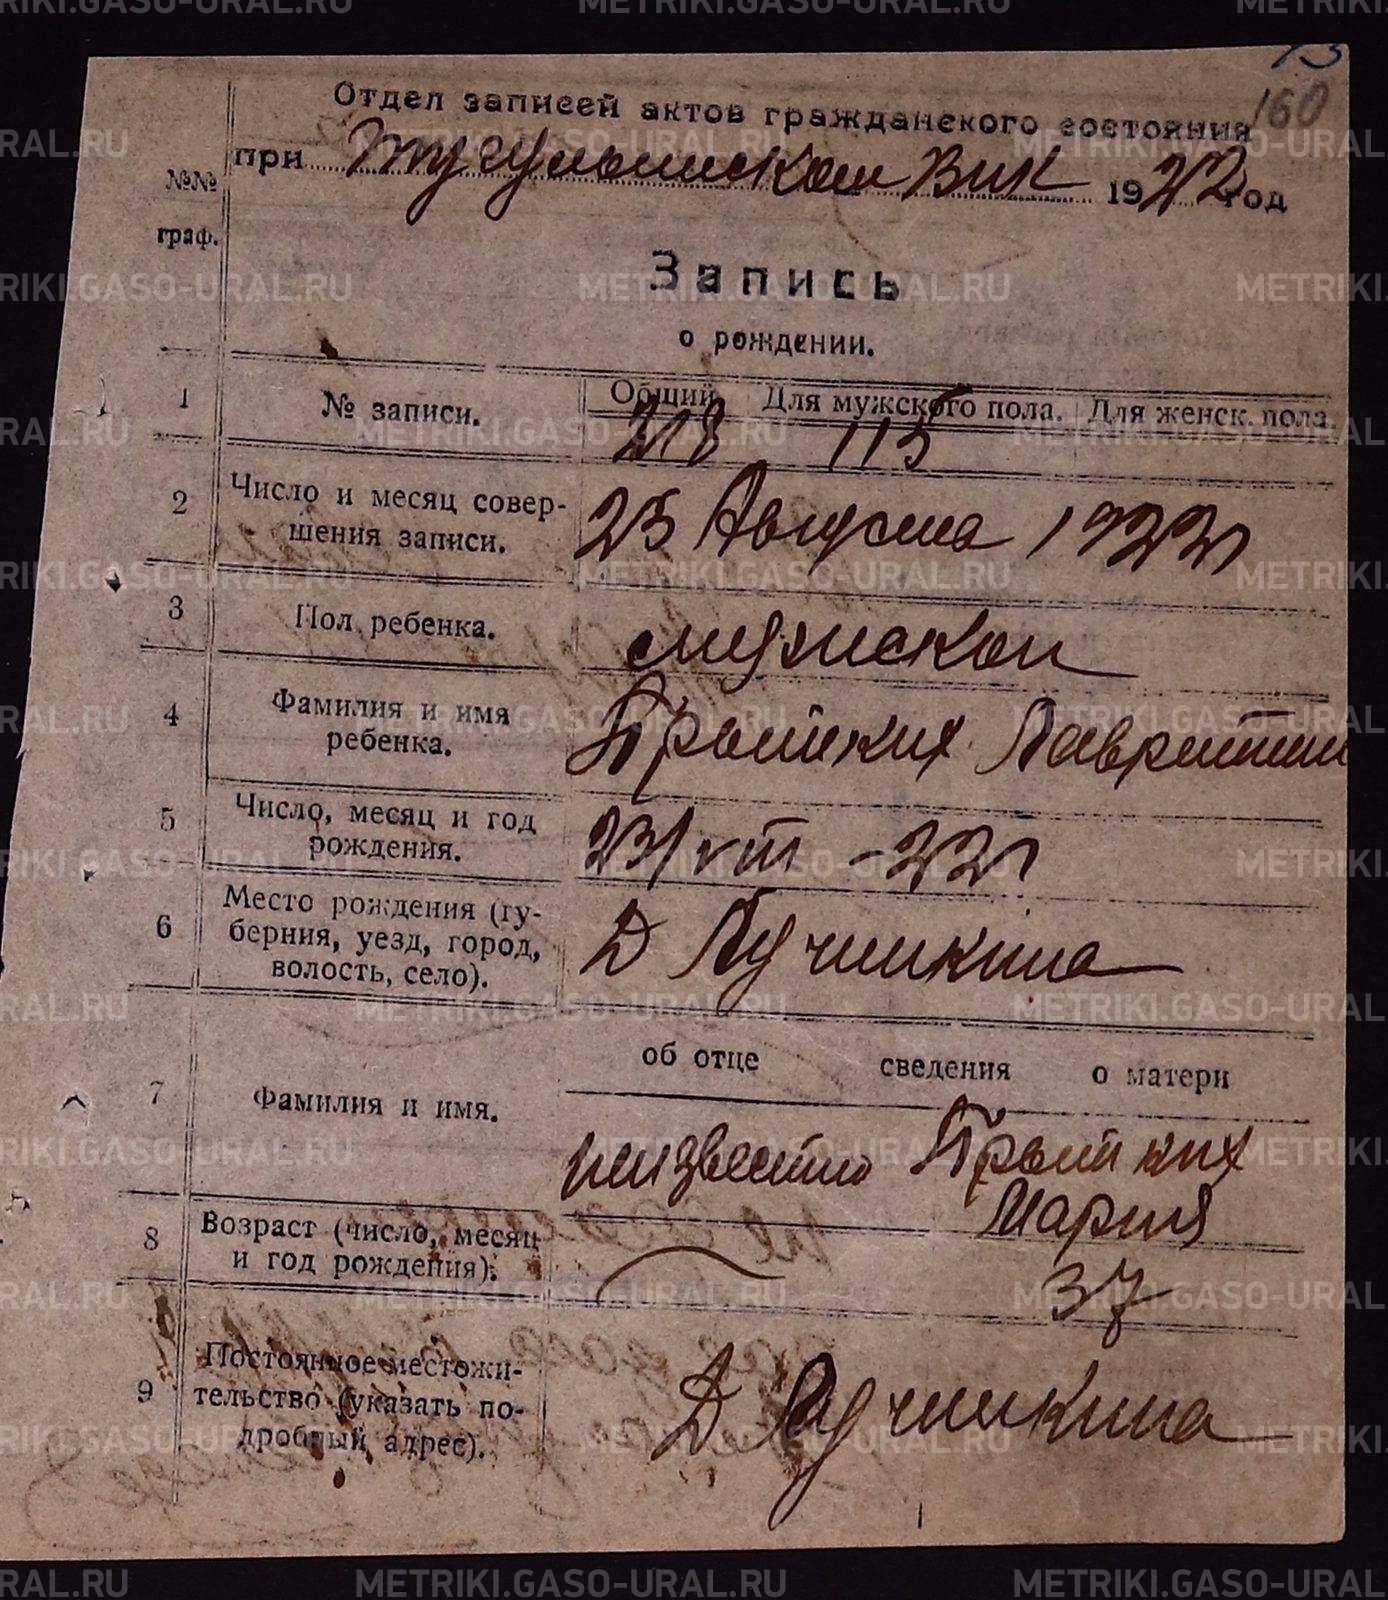 73
160
Отдел записей актов гражданского состояния
при Тугулымском Вик 1922 год
№№
граф.
Запись
о рождении.
1 № записи. Общий Для мужского пола. Для женск. пола.
218 115
2 Число и месяц совер-
шения записи. 25 Августа 1922 г
3 Пол ребенка. мужской
4 Фамилия и имя
ребенка.
5 Число, месяц и год
рождения. 23/VIII - 22 г
6 Место рождения (гу-
берния, уезд, город,
волость, село). Д Лучинкина
об отце сведения о матери
7 Фамилия и имя. неизвестно
Мария
8 Возраст (число, месяц
и год рождения). 37
9 Постоянное местожи-
тельство (указать по-
дробный адрес). Д Лучинкина
METRIKI.GASO-URAL.RU